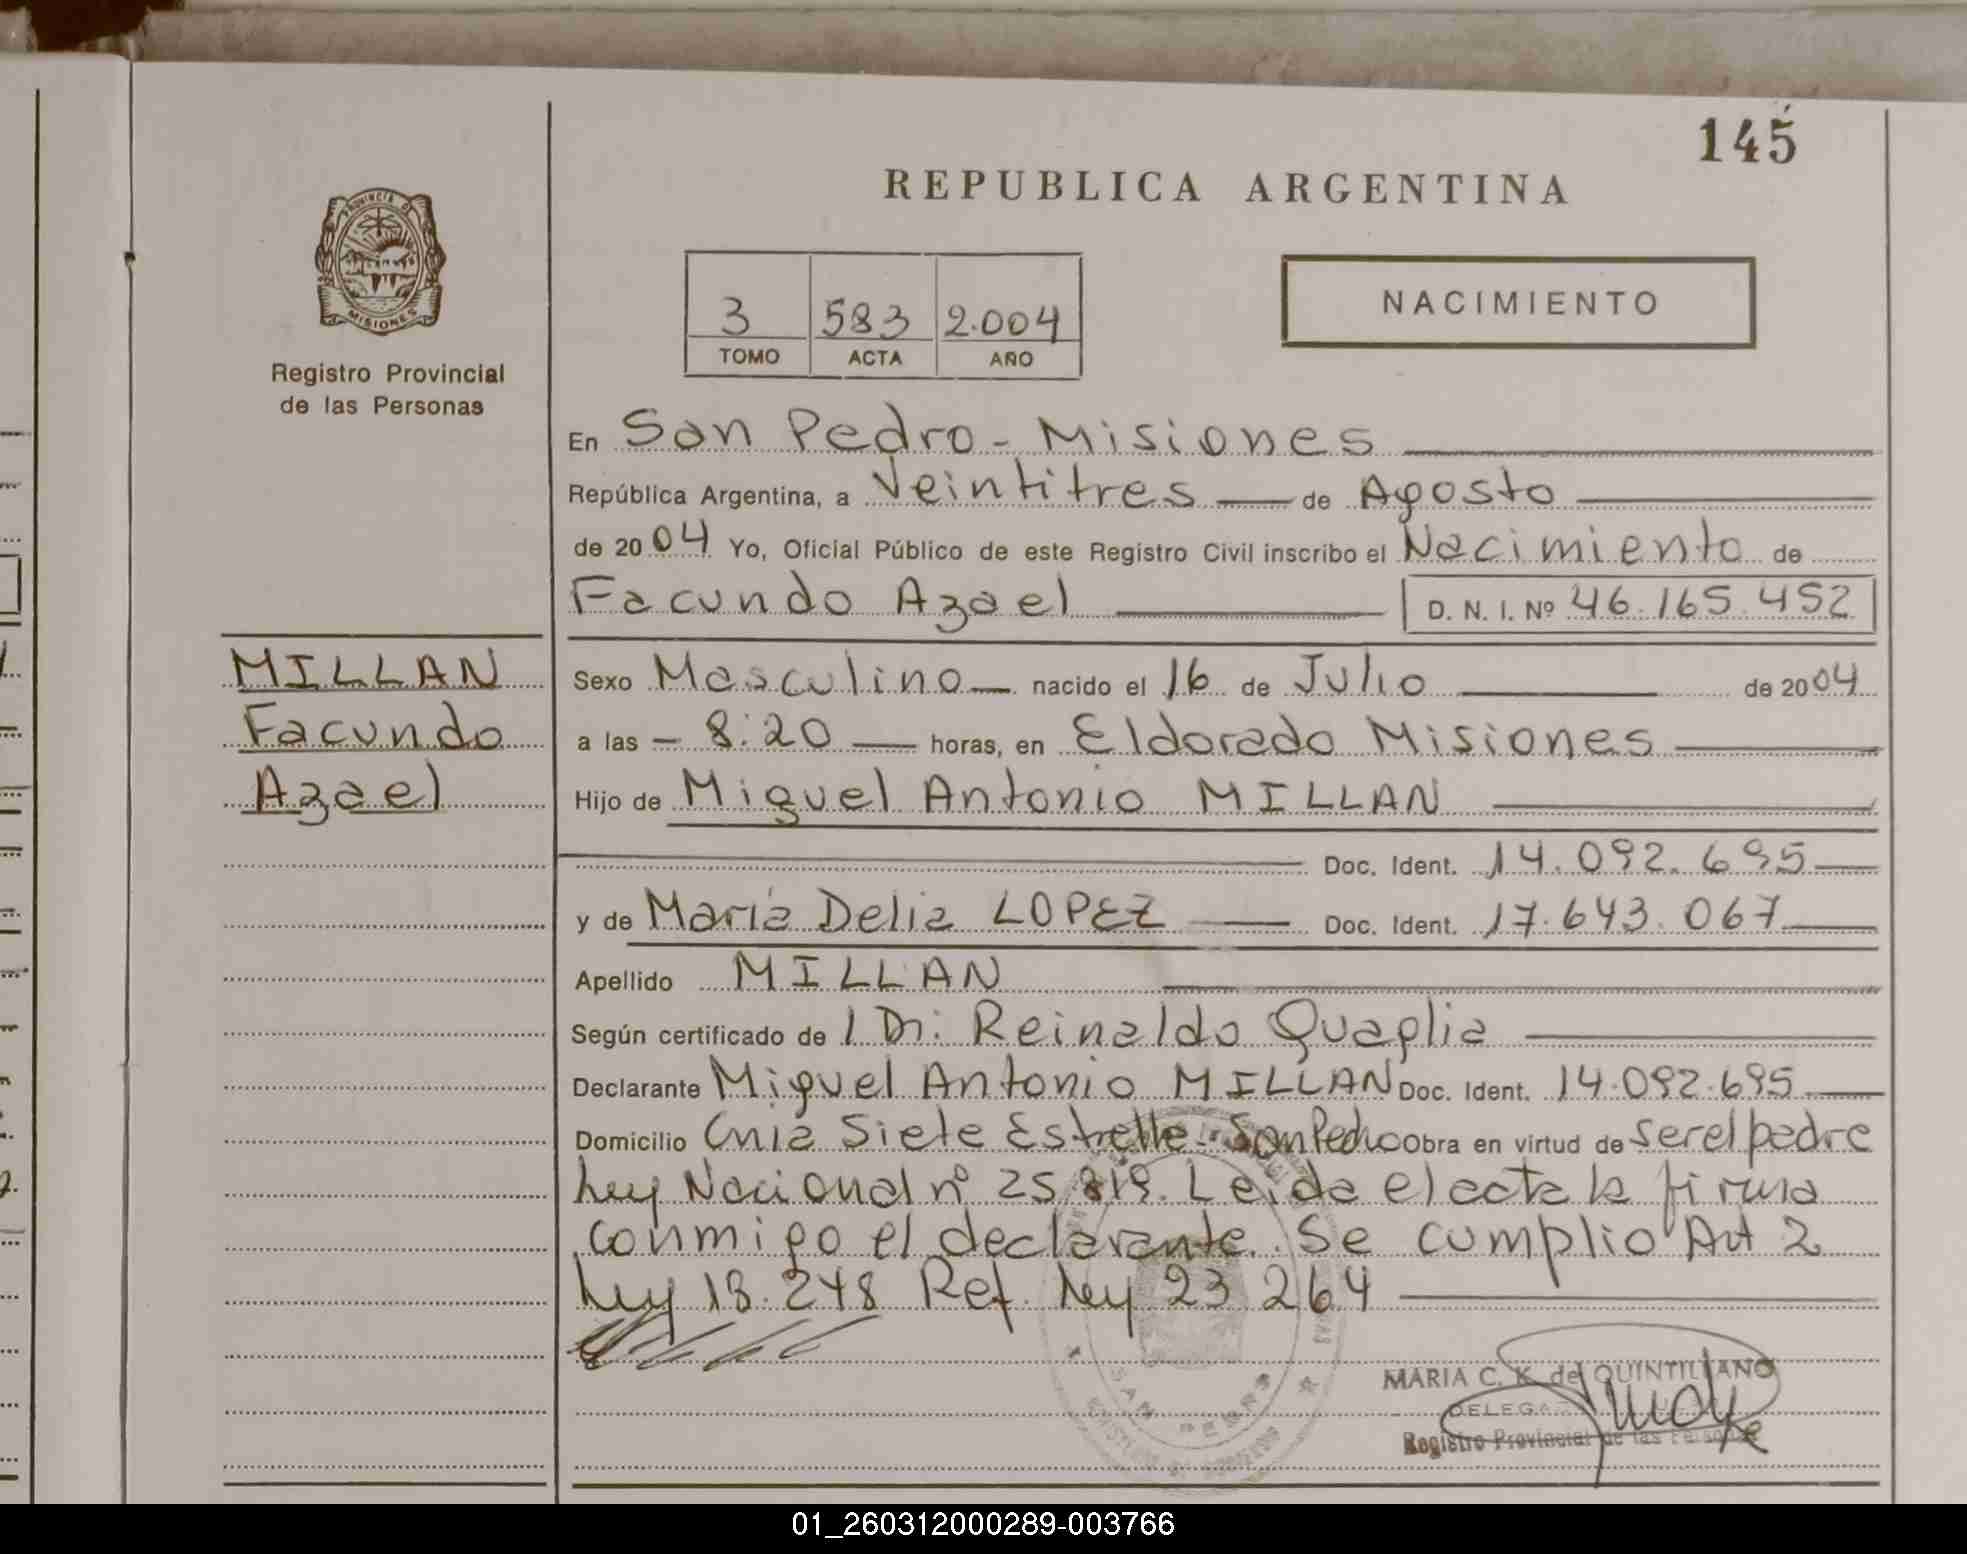 145
REPUBLICA ARGENTINA
PROVINCIA DE
MISIONES
Registro Provincial
de las Personas
3 583 2.004
TOMO ACTA AÑO
NACIMIENTO
En San Pedro - Misiones
República Argentina, a Veintitres de Agosto
de 2004 Yo, Oficial Público de este Registro Civil inscribo el Nacimiento de
Facundo Azael D. N. I. Nº 46.165.452
MILLAN
Facundo
Azael
Sexo Masculino nacido el 16 de Julio de 2004
a las - 8:20 horas, en Eldorado Misiones
Hijo de Miguel Antonio MILLAN
Doc. Ident. 14.092.695
y de María Delia LOPEZ Doc. Ident. 17.643.067
Apellido MILLAN
Según certificado de Reinaldo Quaglia
Declarante Miguel Antonio MILLAN Doc. Ident. 14.092.695
Domicilio Cnia Siete Estrella - San Pedro Obra en virtud de ser el padre
Ley Nacional nº 25 819. Leida el acta la firma
conmigo el declarante. Se cumplio Art 2
Ley 18.248 Ref. Ley 23 264
SAN PEDRO
MARIA C. K. de QUINTILIANO
DELEGA
Registro Provincial de las Personas
01_260312000289-003766